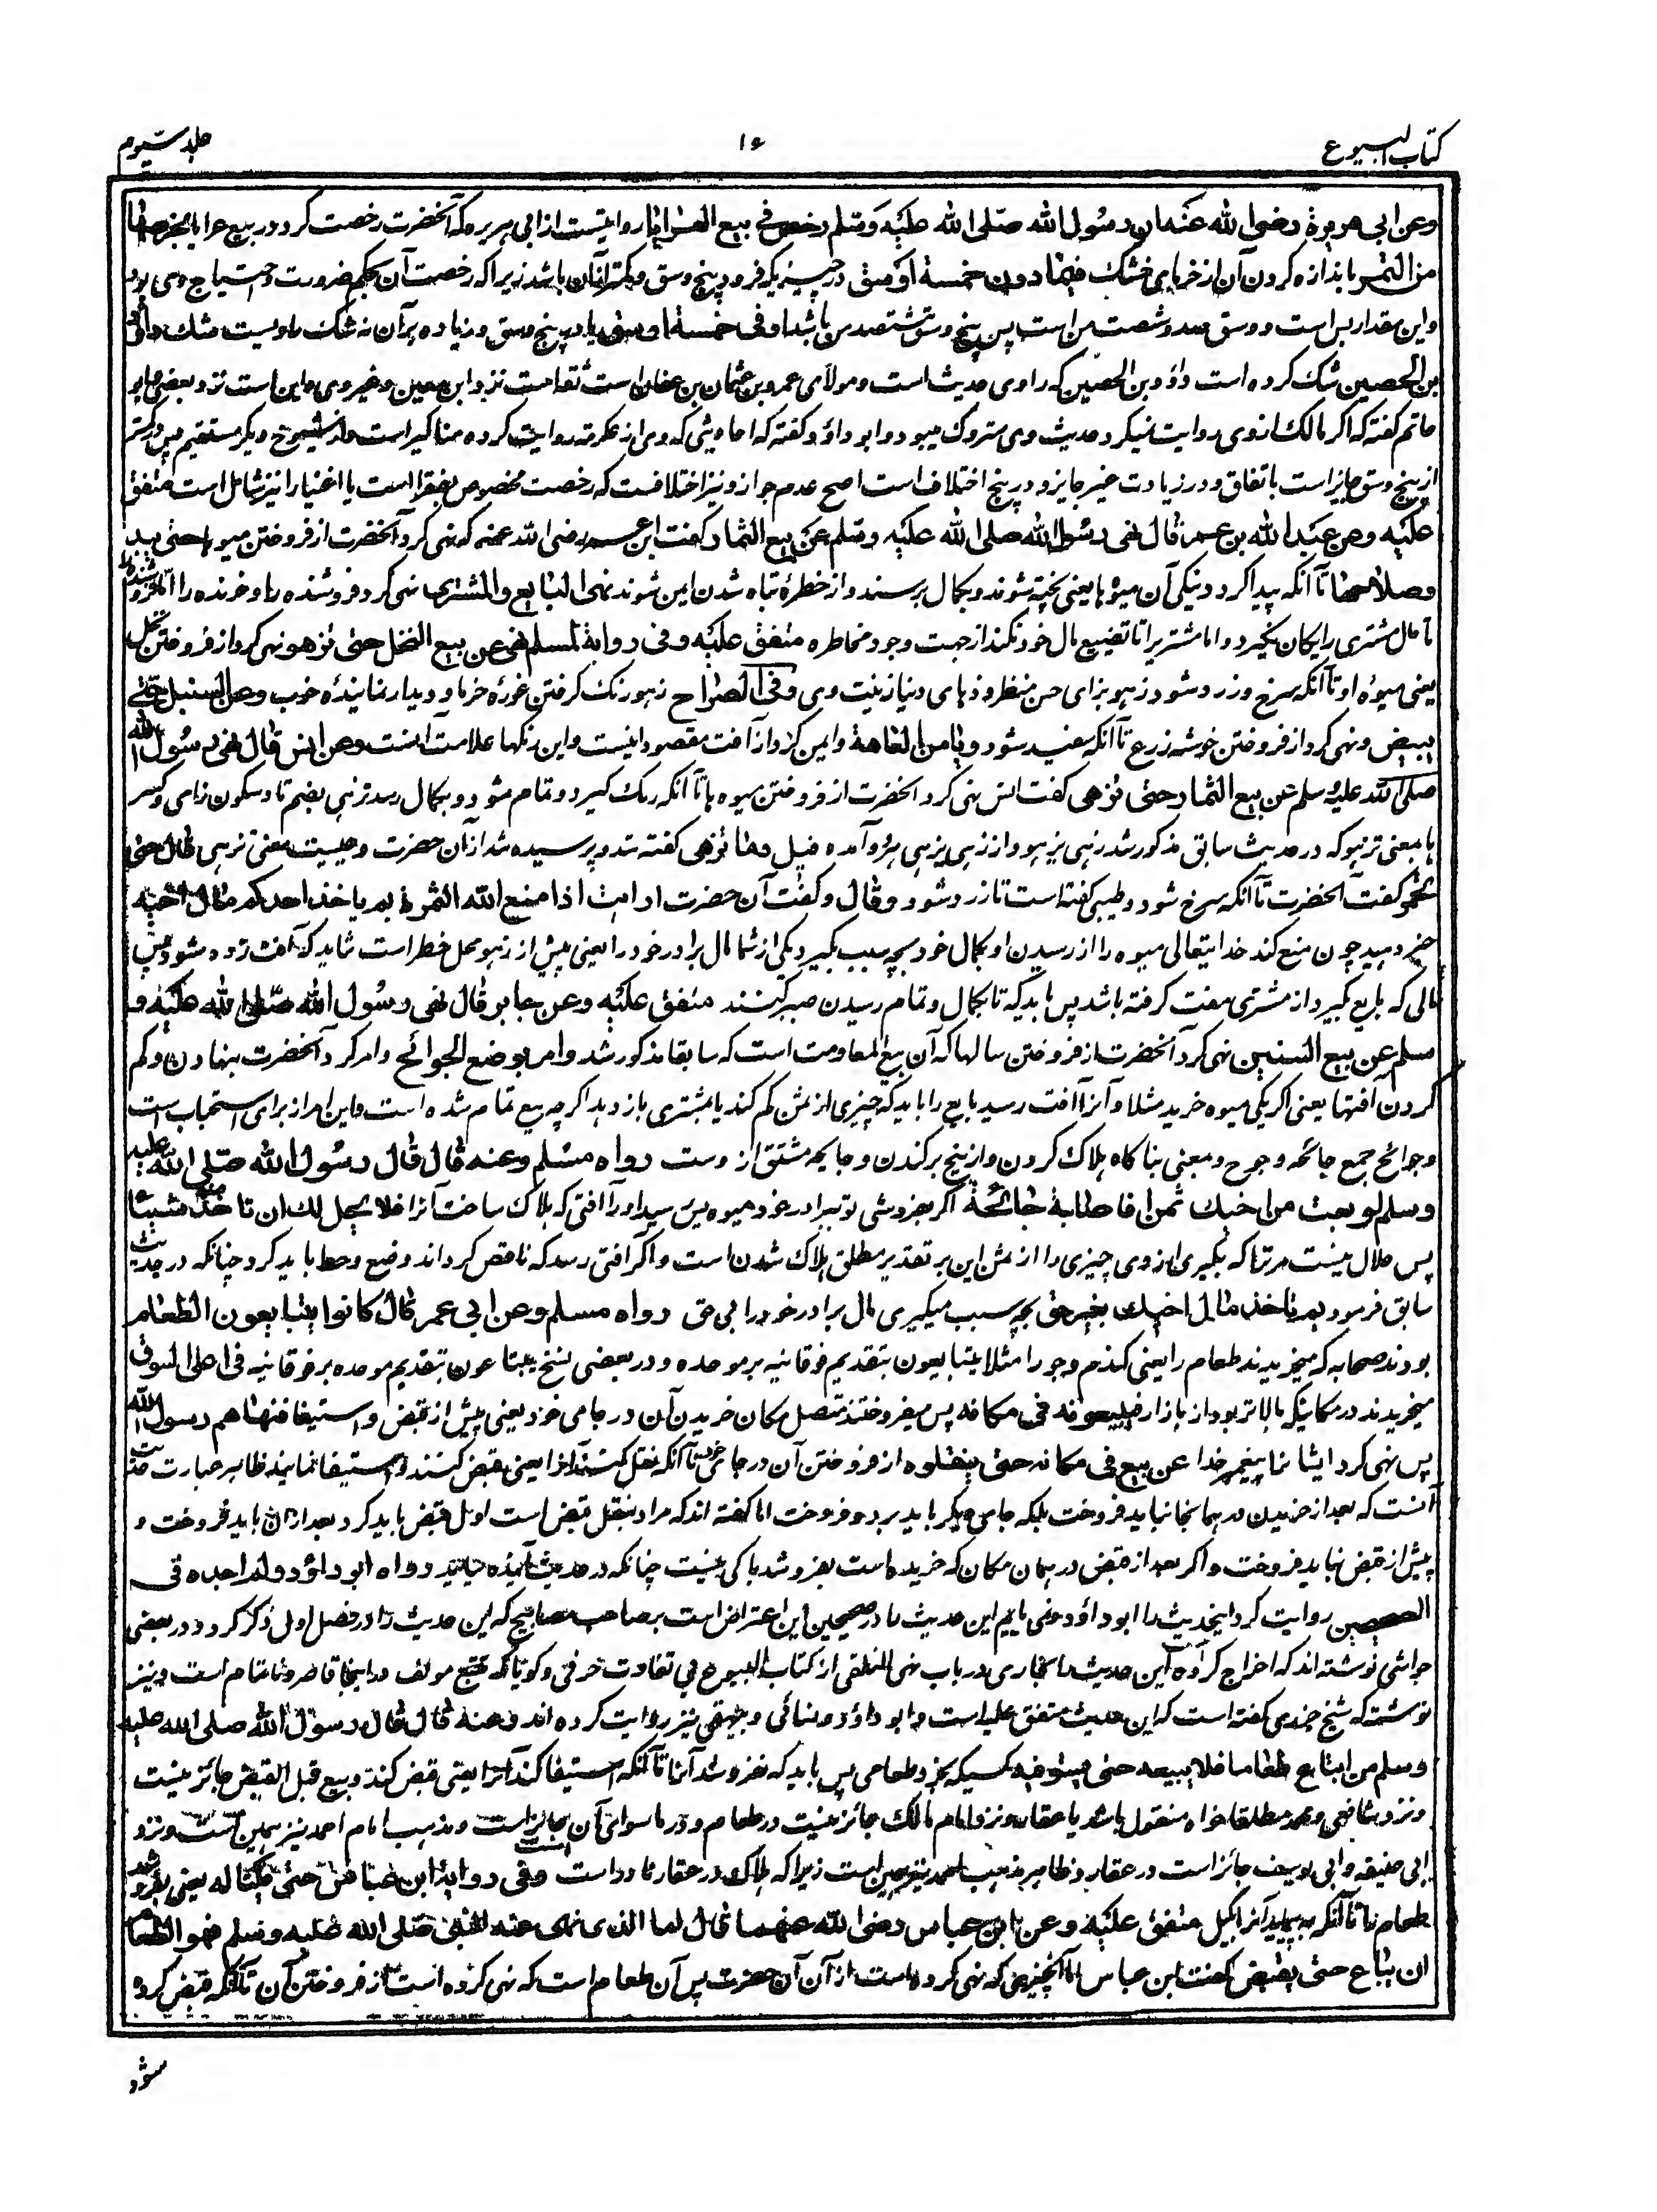 کتاب البیوع
۱۶
جلد سیوم
وعن ابی هریرة رضی الله عنه ان رسول الله صلی الله علیه وسلم رخص فی بیع العرایا روایتست از ابی هریره که آنحضرت رخصت کرد در بیع عرایا بخرصها
من التمر باندازه کردن آن از خرمای خشک فیما دون خمسة اوسق در چیزیکه فرود پنج وسق وکمتر ازان باشد زیراکه رخصت آن بحکم ضرورت واحتیاج
واین مقدار بس است ووسق صد وشصت من است پس پنج وسق هشتصد من باشد او فی خمسة اوسق یا در پنج وسق وزیاده برآن نه شک راویست شک داؤد
بن الحصین شک کرده است داؤد بن الحصین که راوی حدیث است ومولای عمرو بن عثمان بن عفان است ثقه است نزد ابن معین وغیر وی واین است نزد بعضی وابو
حاتم گفته که اگر مالک از وی روایت نمیکرد حدیث وی متروک میبود وابو داؤد گفته که احادیثی که وی از عکرمه روایت کرده مناکیر است واز شیوخ دیگر مستقیم پس در کمتر
از پنج وسق جایز است باتفاق ودر زیادت غیر جایز ودر پنج اختلاف است اصح عدم جواز ونیز اختلافست که رخصت مخصوص بفقرا است یا اغنیا را نیز شامل است متفق
علیه وعن عبد الله بن عمر قال نهی رسول الله صلی الله علیه وسلم عن بیع الثمار گفت ابن عمر رضی الله عنه که نهی کرد آنحضرت از فروختن میوها حتی یبد
وصلاحها تا آنکه پیدا گردد نیکی آن میوها یعنی پخته شوند وبکمال برسند واز خطرهٔ تباه شدن ایمن شوند نهی البایع والمشتری نهی کرد فروشنده را وخرنده را اما فروشنده
تا مال مشتری رایگان نگیرد واما مشتری را تا تضییع مال خود نکند از جهت وجود مخاطره متفق علیه وفی روایة لمسلم نهی عن بیع النخل حتی تزهو نهی کرد از فروختن نخل
یعنی میوهٔ او تا آنکه سرخ وزرد شود زهو بزای حسن منظر ودهای دنیا زینت وی وفی الصراح زهو رنک گرفتن غورهٔ خرما ودیدار نمایندهٔ خوب وعن السنبل حتی
یبیض ونهی کرد از فروختن خوشه زرع تا آنکه سفید شود ویامن العاهة وایمن گردد از آفت مقصود اینست واین رنگها علامت آنست وعن انس قال نهی رسول الله
صلی الله علیه وسلم عن بیع الثمار حتی تزهی گفت انس نهی کرد آنحضرت از فروختن میوه ها تا آنکه رنک گیرد وتمام شود وبکمال رسد تزهی بضم تا وسکون زای وکسر
ها بمعنی تزهو که در حدیث سابق مذکور شد زهی یزهو واز زهی یزهی هردو آمده قیل وما تزهی گفته شد وپرسیده شد ازان حضرت وچیست معنی تزهی قال حتی
تحمر گفت آنحضرت تا آنکه سرخ شود وطیبی گفته است تا زرد شود وقال وگفت آن حضرت ارایت اذا منع الله الثمرة بم یاخذ احدکم مال اخیه
خبر دهید چون منع کند خدایتعالی میوه را از رسیدن او بکمال خود بچه سبب بگیرد یکی از شما مال برادر خود را یعنی پیش از زهو محل خطر است شاید که آفت زده شود پس
مالی که بایع گیرد از مشتری مفت گرفته باشد پس باید که تا بکمال وتمام رسیدن صبر کنند متفق علیه وعن جابر قال نهی رسول الله صلی الله علیه و
سلم عن بیع السنین نهی کرد آنحضرت از فروختن سالها که آن بیع المعاومت است که سابقا مذکور شد وامر بوضع الجوائح وامر کرد آنحضرت بنهادن وکم
کردن آفتها یعنی اگر یکی میوه خرید مثلا وآنرا آفت رسید بایع را باید که چیزی از ثمن کم کند یا بمشتری باز دهد اگرچه بیع تمام شده است واین امر از برای استحباب است
وجوائح جمع جائحه وجوح ومعنی بناگاه هلاک کردن واز بیخ برکندن وجایحه مشتق ازوست رواه مسلم وعنه قال قال رسول الله صلی الله علیه
وسلم لو بعت من اخیک ثمرا فاصابته جائحة اگر بفروشی تو ببرادر خود میوه پس رسید او را آفتی که هلاک ساخت آنرا فلا یحل لک ان تاخذ منه شیئا
پس حلال نیست مر ترا که بگیری از وی چیزی را از ثمن این بر تقدیر مطلق هلاک شدن است واگر آفتی رسد که ناقص گرداند وضع وحط باید کرد چنانکه در حدیث
سابق فرمود بم تاخذ مال اخیک بغیر حق بچه سبب میگیری مال برادر خود را بی حق رواه مسلم وعن ابن عمر قال کانوا یبتاعون الطعام
بودند صحابه که میخریدند طعام را یعنی گندم وجو را مثلا یتبایعون بتقدیم فوقانیه بر موحده ودر بعضی نسخ یبتاعون بتقدیم موحده بر فوقانیه فی اعلی السوق
میخریدند در مکانیکه بالاتر بود از بازار فیبیعونه فی مکانه پس میفروختند متصل مکان خریدن آن در جای خود یعنی پیش از قبض واستیفا فنهاهم رسول الله
پس نهی کرد ایشانرا پیغمبر خدا عن بیعه فی مکانه حتی ینقلوه از فروختن آن در جای خرید تا آنکه نقل کنند آنرا یعنی قبض کنند واستیفا نمایند ظاهر عبارت حدیث
آنست که بعد از خریدن در همانجا نباید فروخت بلکه جای دیگر باید برد وفروخت اما گفته اند که مراد بنقل قبض است اول قبض باید کرد بعد ازان باید فروخت و
پیش از قبض نباید فروخت واگر بعد از قبض در همان مکان که خریده است بفروشد باکی نیست چنانکه در حدیث آینده بیاید رواه ابو داؤد ولم اجده فی
الصحیحین روایت کرد اینحدیث را ابو داؤد ونمی یابم این حدیث را در صحیحین این اعتراض است بر صاحب مصابیح که این حدیث را در فصل اول ذکر کرد ودر بعضی
حواشی نوشته اند که اخراج کرده است این حدیث را بخاری در باب نهی التلقی از کتاب البیوع بی تفاوت حرفی وگویا که تتبع مؤلف در اینجا قاصر وناتمام است ونیز
نوشته که شیخ جزری گفته است که این حدیث متفق علیه است وابو داؤد ونسائی وبیهقی نیز روایت کرده اند وعنه قال قال رسول الله صلی الله علیه
وسلم من ابتاع طعاما فلا یبیعه حتی یستوفیه کسیکه بخرد طعامی پس باید که نفروشد آنرا تا آنکه استیفا کند آنرا یعنی قبض کند وبیع قبل القبض جائز نیست
ونزد شافعی ومحمد مطلقا خواه منقول باشد یا عقار ونزد امام مالک جائز نیست در طعام ودر ما سوای آن جائز است ومذهب امام احمد نیز همین است ونزد
ابی حنیفه وابی یوسف جائز است در عقار وظاهر مذهب احمد نیز همین است زیرا که هلاک در عقار نادر است وفی روایة ابن عباس حتی یکتاله یعنی نفروشد
طعام را تا آنکه بپیماید آنرا بکیل متفق علیه وعن ابن عباس رضی الله عنهما قال اما الذی نهی عنه النبی صلی الله علیه وسلم فهو الطعام
ان یباع حتی یقبض گفت ابن عباس اما آنچیزی که نهی کرده است از آن آن حضرت پس آن طعام است که نهی کرده است از فروختن آن تا آنکه قبض کرده
شود